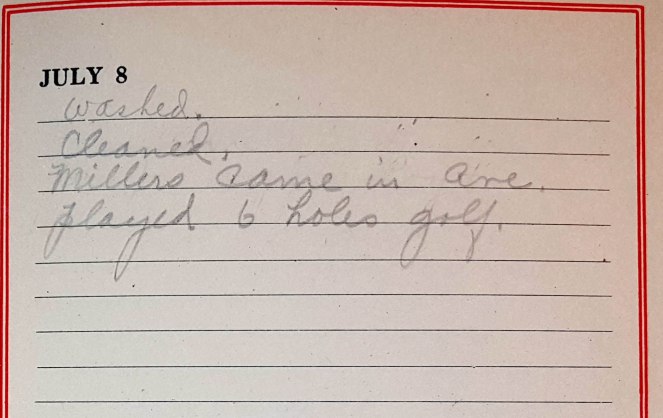 JULY 8
Washed.
Cleaned.
Millers came in eve.
played 6 holes golf.